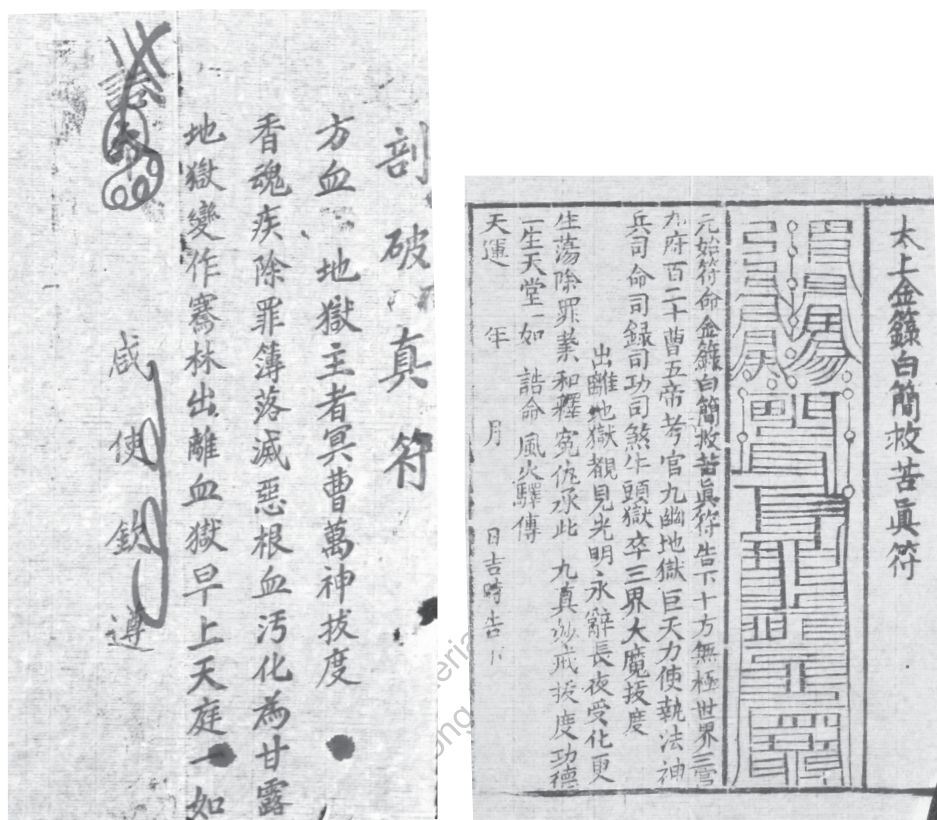 剖破真符
方血　地獄主者冥曹萬神拔度
香魂疾除罪簿落滅惡根血污化為甘露
地獄變作騫林出離血獄早上天庭一如
誥命
咸使欽遵
太上金籙白簡救苦眞符
元始符命金籙白簡救苦眞符告下十方無極世界三官
九府百二十曹五帝考官九幽地獄巨天力使執法神
兵司命司録司功司煞牛頭獄卒三界大魔拔度
出離地獄覩見光明永辭長夜受化更
生蕩除罪業和釋寃仇承此　九真妙戒拔度功德
一生天堂一如　誥命風火驛傳
天運　年　月　日吉時告下